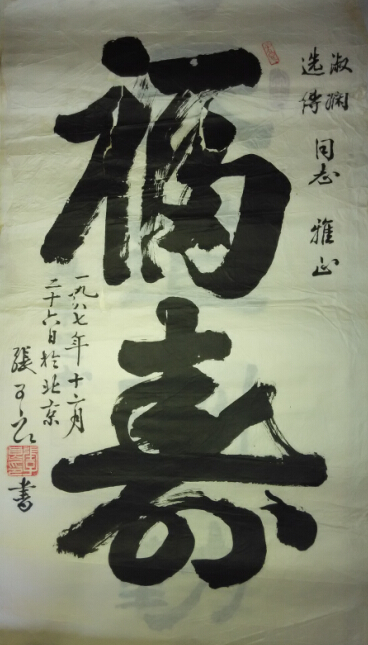 淑娴
选
同志 雅正
福寿
一九八七年十二月
二十六日於北京
張子
書